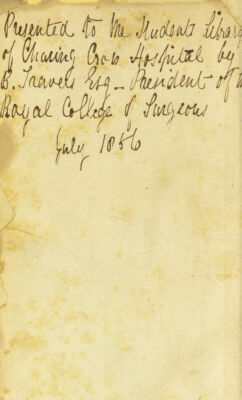 Presented to the Students Library
of Charing Cross Hospital by
B. Travers Esq – President of the
Royal College of Surgeons
July 1856